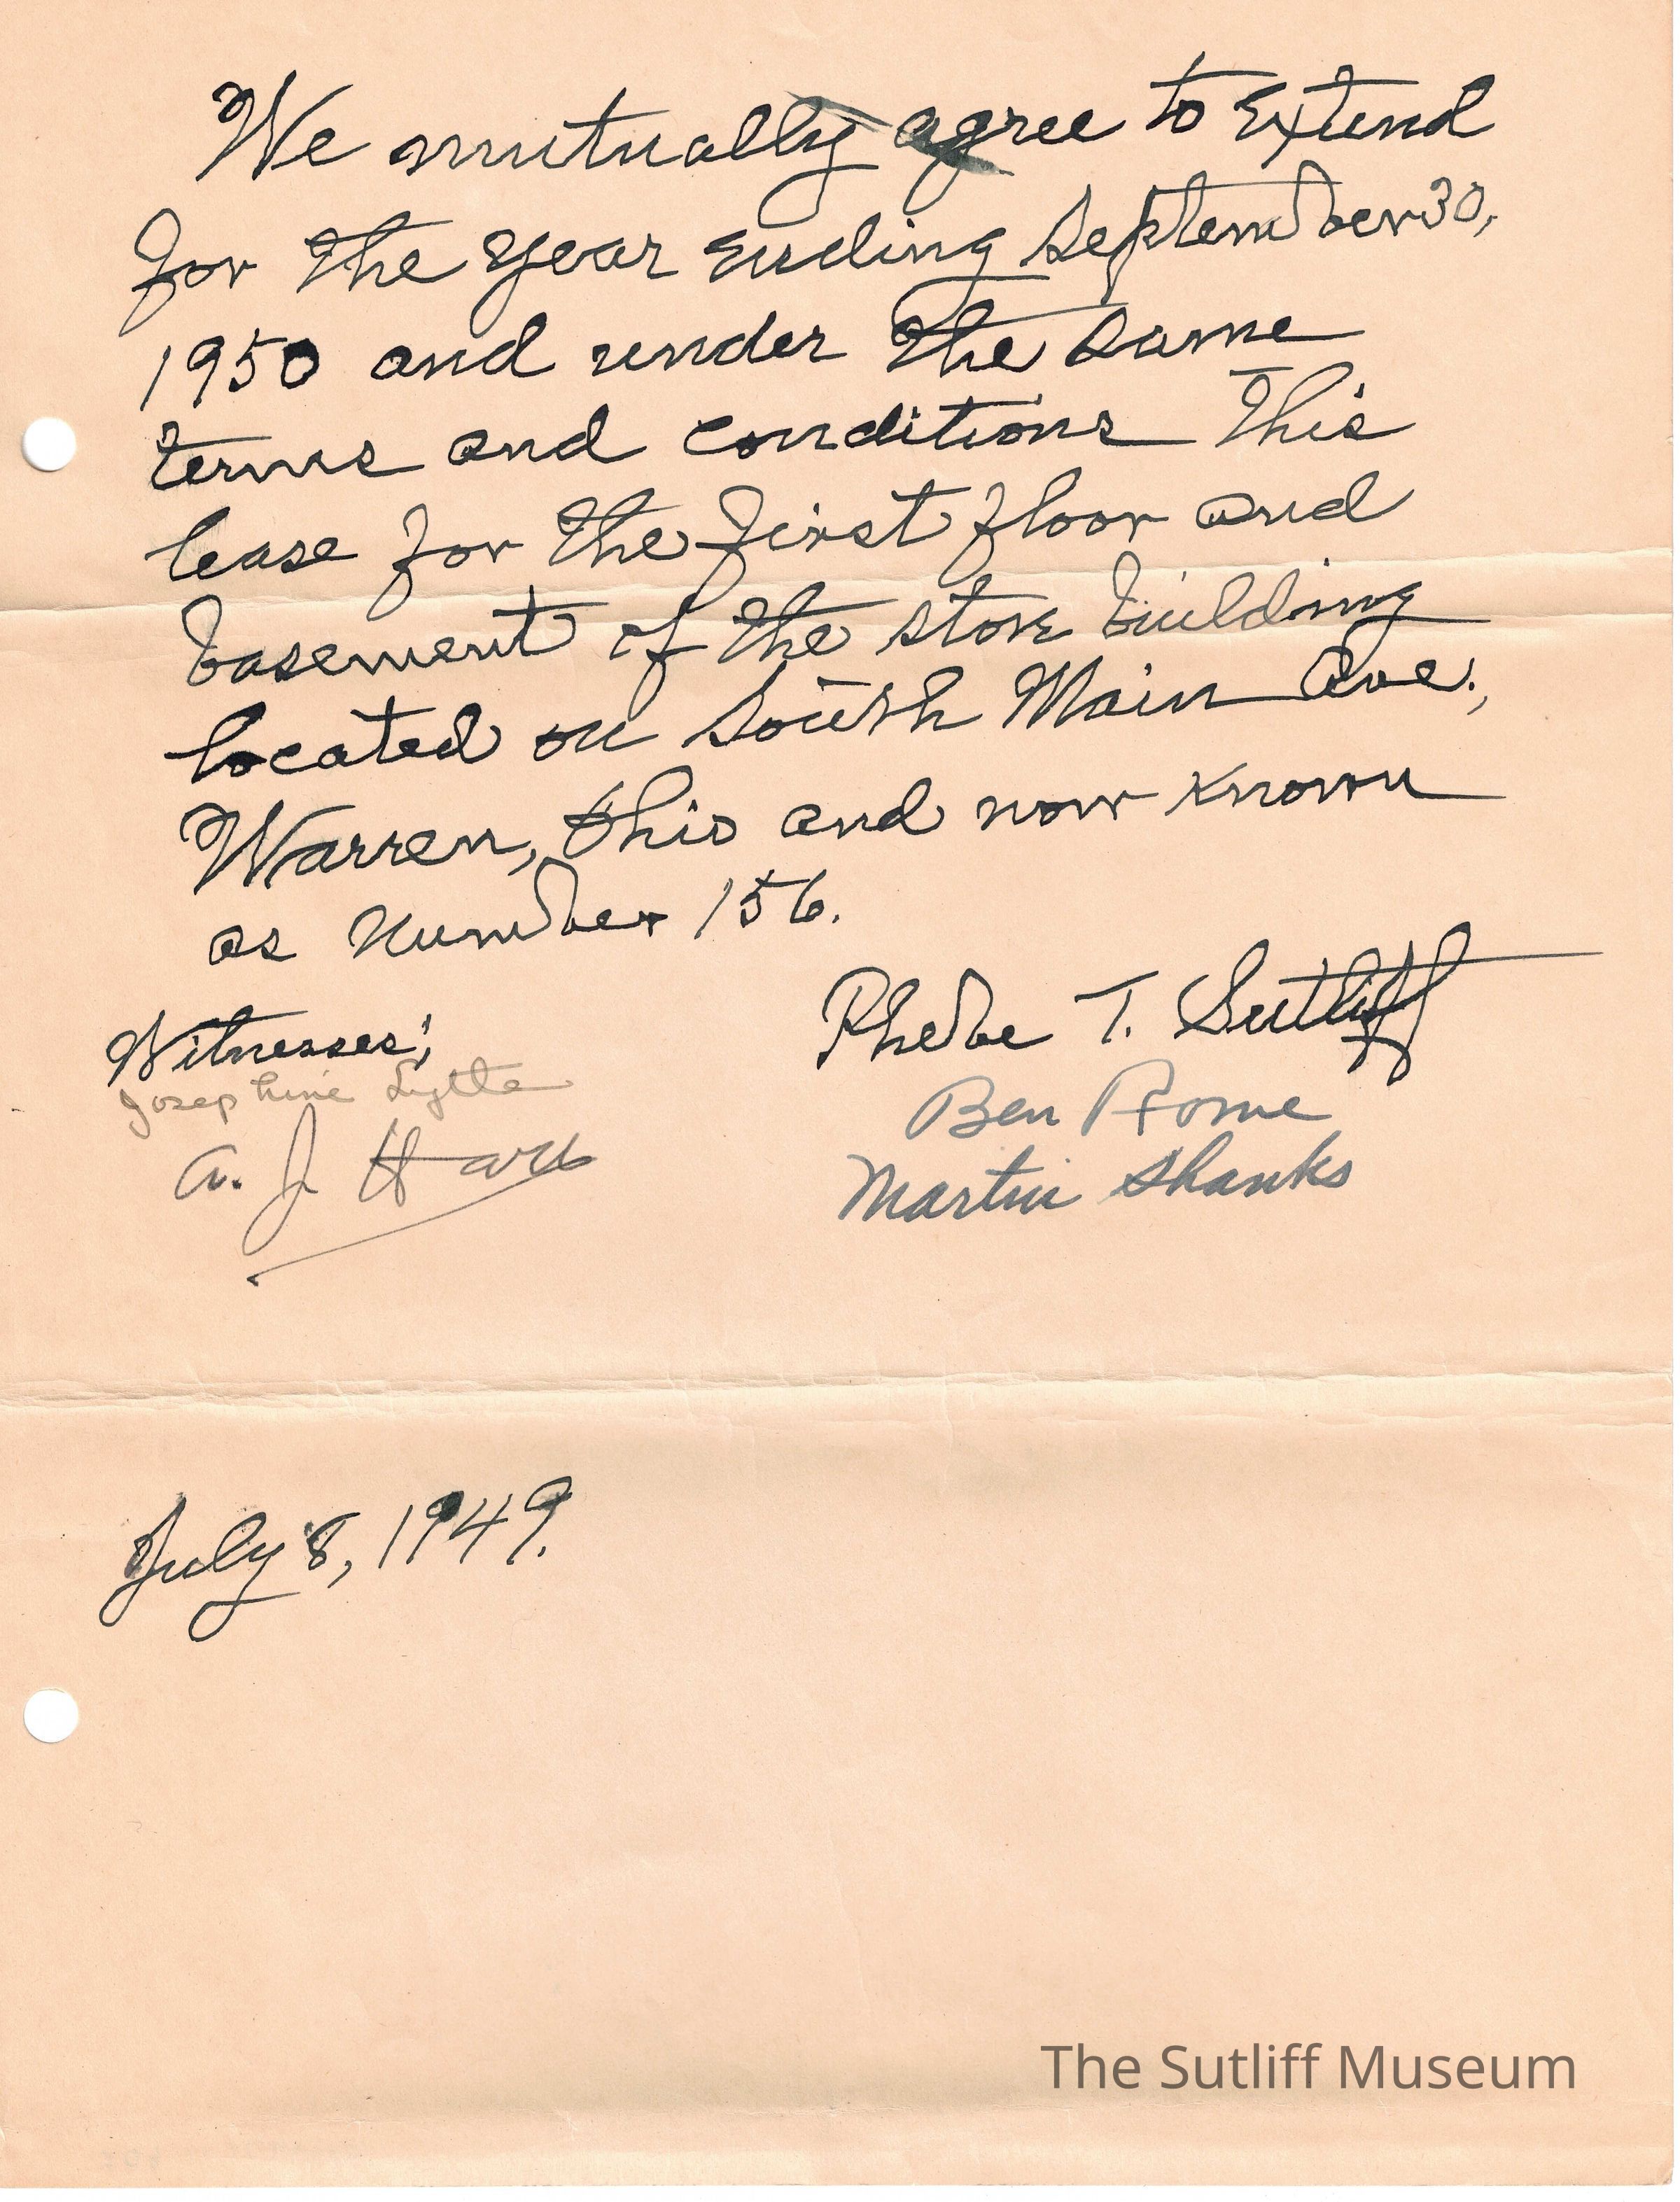 We mutually agree to Extend
for the year ending September 30,
1950 and under the same
terms and conditions this
lease for the first floor and
basement of the store building
located on South Main Ave.,
Warren, Ohio and now known
as number 156.
Witnesses;
Phebe T. Sutliff
Josephine Lytle
Ben Rome
A. J.
Martin Shanks
July 8, 1949.
The Sutliff Museum